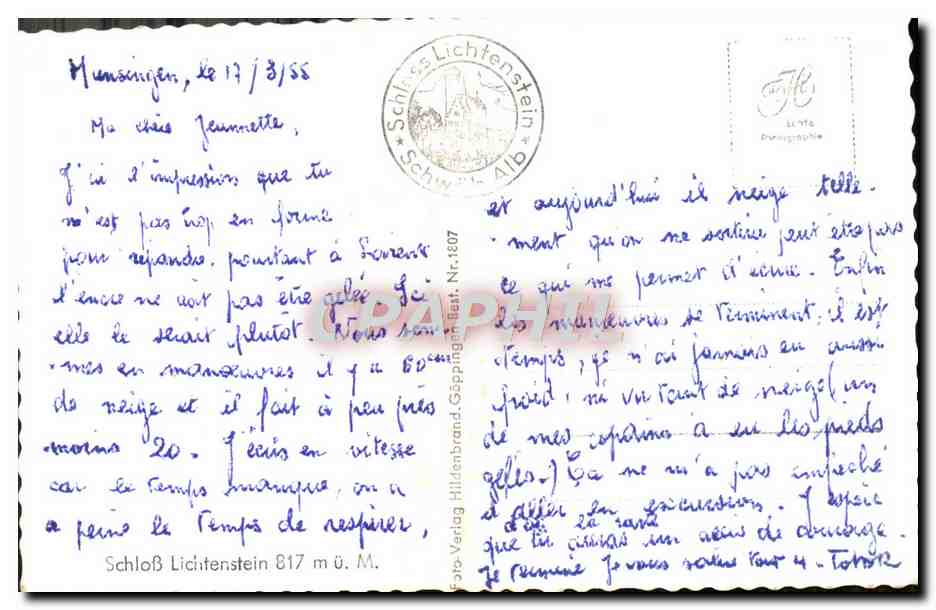 Munsingen, le 17/3/55
Ma chère Jeannette,
J'ai l'impression que tu
n'est pas trop en forme
pour répondre, pourtant à Lorient
l'encre ne doit pas être gelée. Ici
elle le serait plutôt. Nous som-
-mes en manœuvres il y a 60cm
de neige et il fait à peu près
moins 20. J'écris en vitesse
car le temps manque, on a
a peine le temps de respirer,
Schloß Lichtenstein 817 m ü. M.
Schloss Lichtenstein
Schwäb. Alb
Foto-Verlag Hildenbrand, Göppingen Best. Nr. 1807
Echte
Photographie
CPAPHIL
et aujourd'hui il neige telle-
-ment qu'on ne sortira peut être pas
ce qui me permet d'écrire. Enfin
les manœuvres se terminent, il est
temps, je n'ai jamais eu aussi
froid, ni vu tant de neige (un
de mes copains a eu les pieds
gelés.) Ça ne m'a pas empêché
d'aller en excursion. J'espère
que tu auras un accès de courage.
Je termine Je vous salue tout